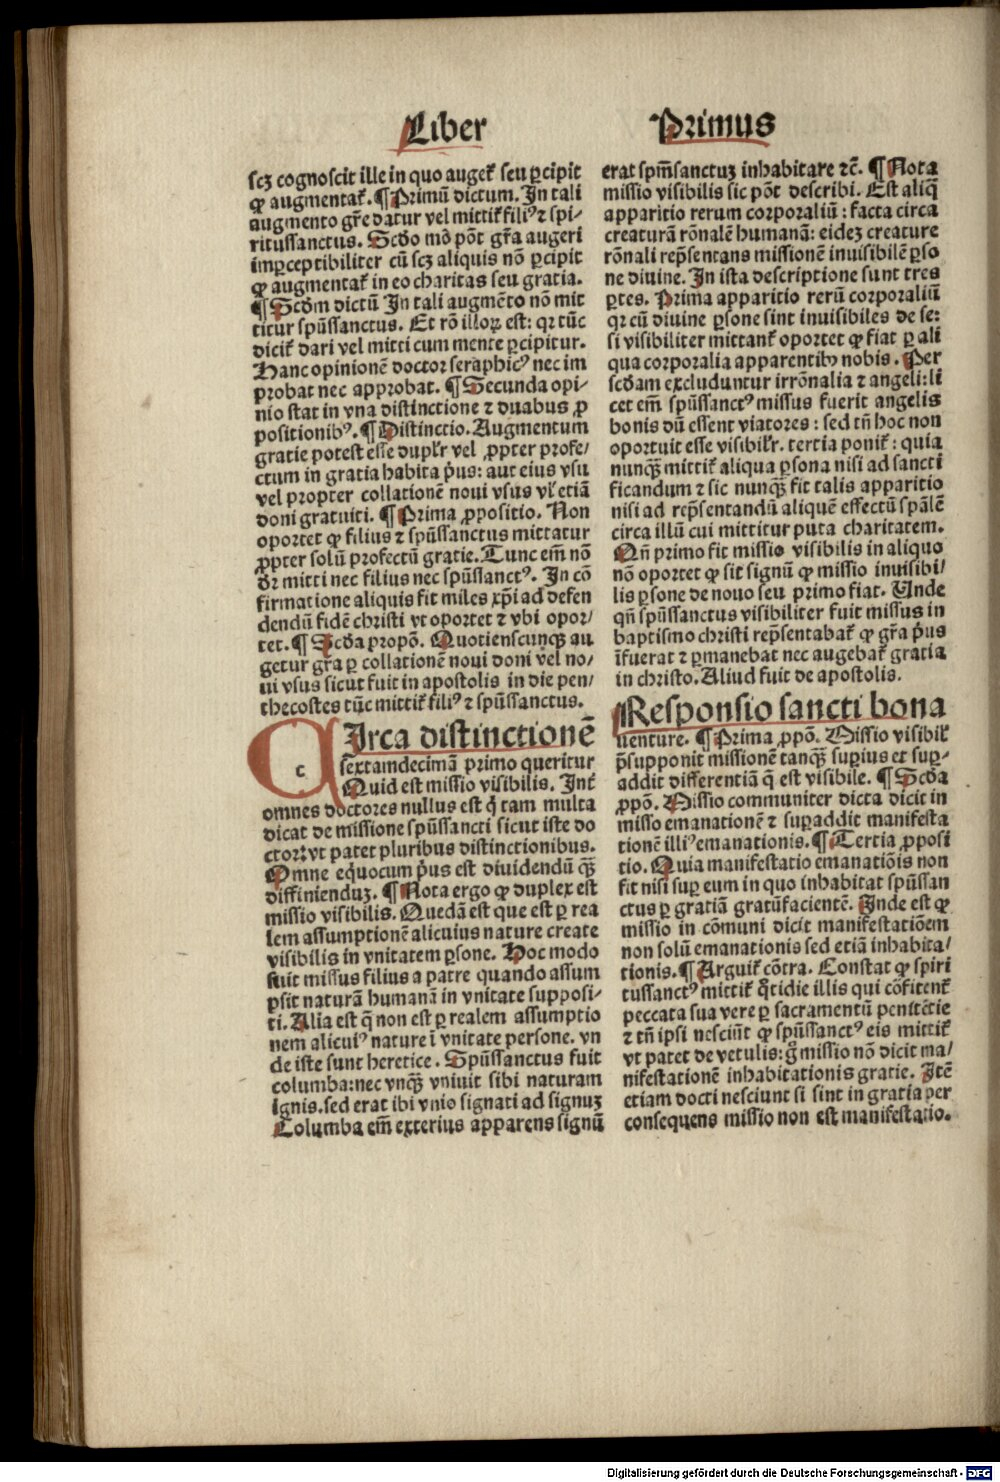 Liber
Primus
scꝫ cognoscit ille in quo augeť seu ꝑcipit
ꝙ augmentať. ¶ Primū dictum. In tali
augmento gr̄e datur vel mittiť filiꝰ ⁊ spi-
ritussanctus. Scd̄o mō pōt gr̄a augeri
imꝑceptibiliter cū scꝫ aliquis nō ꝑcipit
ꝙ augmentať in eo charitas seu gratia.
¶ Scd̄m dictū In tali augmēto nō mit
titur spūssanctus. Et rō illoꝝ est: qꝛ tūc
diciť dari vel mitti cum mente ꝑcipitur.
Hanc opinionē doctor seraphicꝰ nec im
probat nec approbat. ¶ Secunda opi-
nio stat in vna distinctione ⁊ duabus ꝓ
positionibꝰ. ¶ Distinctio. Augmentum
gratie potest esse duplr̄ vel ꝓpter profe/
ctum in gratia habita p̄us: aut eius vsu
vel propter collationē noui vsus vl̄ etiā
doni gratuiti. ¶ Prima ꝓpositio. Non
oportet ꝙ filius ⁊ spūssanctus mittatur
ꝓpter solū profectū gratie. Tunc em̄ nō
dr̄ mitti nec filius nec spūssanctꝰ. In cō
firmatione aliquis fit miles xp̄i ad defen
dendū fidē christi vt oportet ⁊ vbi opor/
tet. ¶ Scd̄a propō. Quotienscunqꝫ au
getur gr̄a ꝑ collationē noui doni vel no/
ui vsus sicut fuit in apostolis in die pen/
thecostes tūc mittiť filiꝰ ⁊ spūssanctus.
CIrca distinctionē
c
sextamdecimā primo queritur
Quid est missio visibilis. Inť
omnes doctores nullus est q̇ tam multa
dicat de missione spūssancti sicut iste do
ctor: vt patet pluribus distinctionibus.
Omne equocum p̄us est diuidendū qꝫ̄
diffinienduꝫ. ¶ Nota ergo ꝙ duplex est
missio visibilis. Quedā est que est ꝑ rea
lem assumptionē alicuius nature create
visibilis in vnitatem ꝑsone. Hoc modo
fuit missus filius a patre quando assum
psit naturā humanā in vnitate supposi-
ti. Alia est q̄ non est ꝑ realem assumptio
nem alicuiꝰ nature ī vnitate persone. vn
de iste sunt heretice. Spūssanctus fuit
columba: nec vnqꝫ̄ vniuit sibi naturam
ignis. sed erat ibi vnio signati ad signuꝫ
Columba em̄ exterius apparens signū
erat spm̄sanctuꝫ inhabitare ⁊c̄. ¶ Nota
missio visibilis sic pōt describi. Est aliq̄
apparitio rerum corporaliū: facta circa
creaturā rōnalē humanā: eideꝫ creature
rōnali rep̄sentans missionē inuisibilē ꝑso
ne diuine. In ista descriptione sunt tres
ꝑtes. Prima apparitio rerū corporaliū
qꝛ cū diuine ꝑsone sint inuisibiles de se:
si visibiliter mittanť oportet ꝙ fiat ꝑ ali
qua corporalia apparentibꝰ nobis. Per
scd̄am excluduntur irrōnalia ⁊ angeli: li
cet em̄ spūssanctꝰ missus fuerit angelis
bonis dū essent viatores: sed tn̄ hoc non
oportuit esse visibilr̄. tertia poniť: quia
nunqꝫ̄ mittiť aliqua ꝑsona nisi ad sancti
ficandum ⁊ sic nunqꝫ̄ fit talis apparitio
nisi ad rep̄sentandū aliquē effectū spālē
circa illū cui mittitur puta charitatem.
Qn̄ primo fit missio visibilis in aliquo
nō oportet ꝙ sit signū ꝙ missio inuisibi/
lis ꝑsone de nouo seu primo fiat. Unde
qn̄ spūssanctus visibiliter fuit missus in
baptismo christi rep̄sentabať ꝙ gr̄a p̄us
īfuerat ⁊ ꝑmanebat nec augebať gratia
in christo. Aliud fuit de apostolis.
¶ Responsio sancti bona
uenture. ¶ Prima ꝓpō. Missio visibil̄
p̄supponit missionē tanqꝫ̄ suꝑius et suꝑ-
addit differentiā q̄ est visibile. ¶ Scd̄a
ꝓpō. Missio communiter dicta dicit in
misso emanationē ⁊ suꝑaddit manifesta
tionē illiꝰ emanationis. ¶ Tertia ꝓposi
tio. Quia manifestatio emanatiōis non
fit nisi suꝑ eum in quo inhabitat spūssan
ctus ꝑ gratiā gratūfacientē. Inde est ꝙ
missio in cōmuni dicit manifestatiōem
non solū emanationis sed etiā inhabita/
tionis. ¶ Arguiť cōtra. Constat ꝙ spiri
tussanctꝰ mittiť q̊tidie illis qui cōfitenť
peccata sua vere ꝑ sacramentū penitētie
⁊ tn̄ ipsi nesciūt ꝙ spūssanctꝰ eis mittiť
vt patet de vetulis: g̊ missio nō dicit ma/
nifestationē inhabitationis gratie. Itē
etiam docti nesciunt si sint in gratia per
consequens missio non est manifestatio.
Digitalisierung gefördert durch die Deutsche Forschungsgemeinschaft - DFG